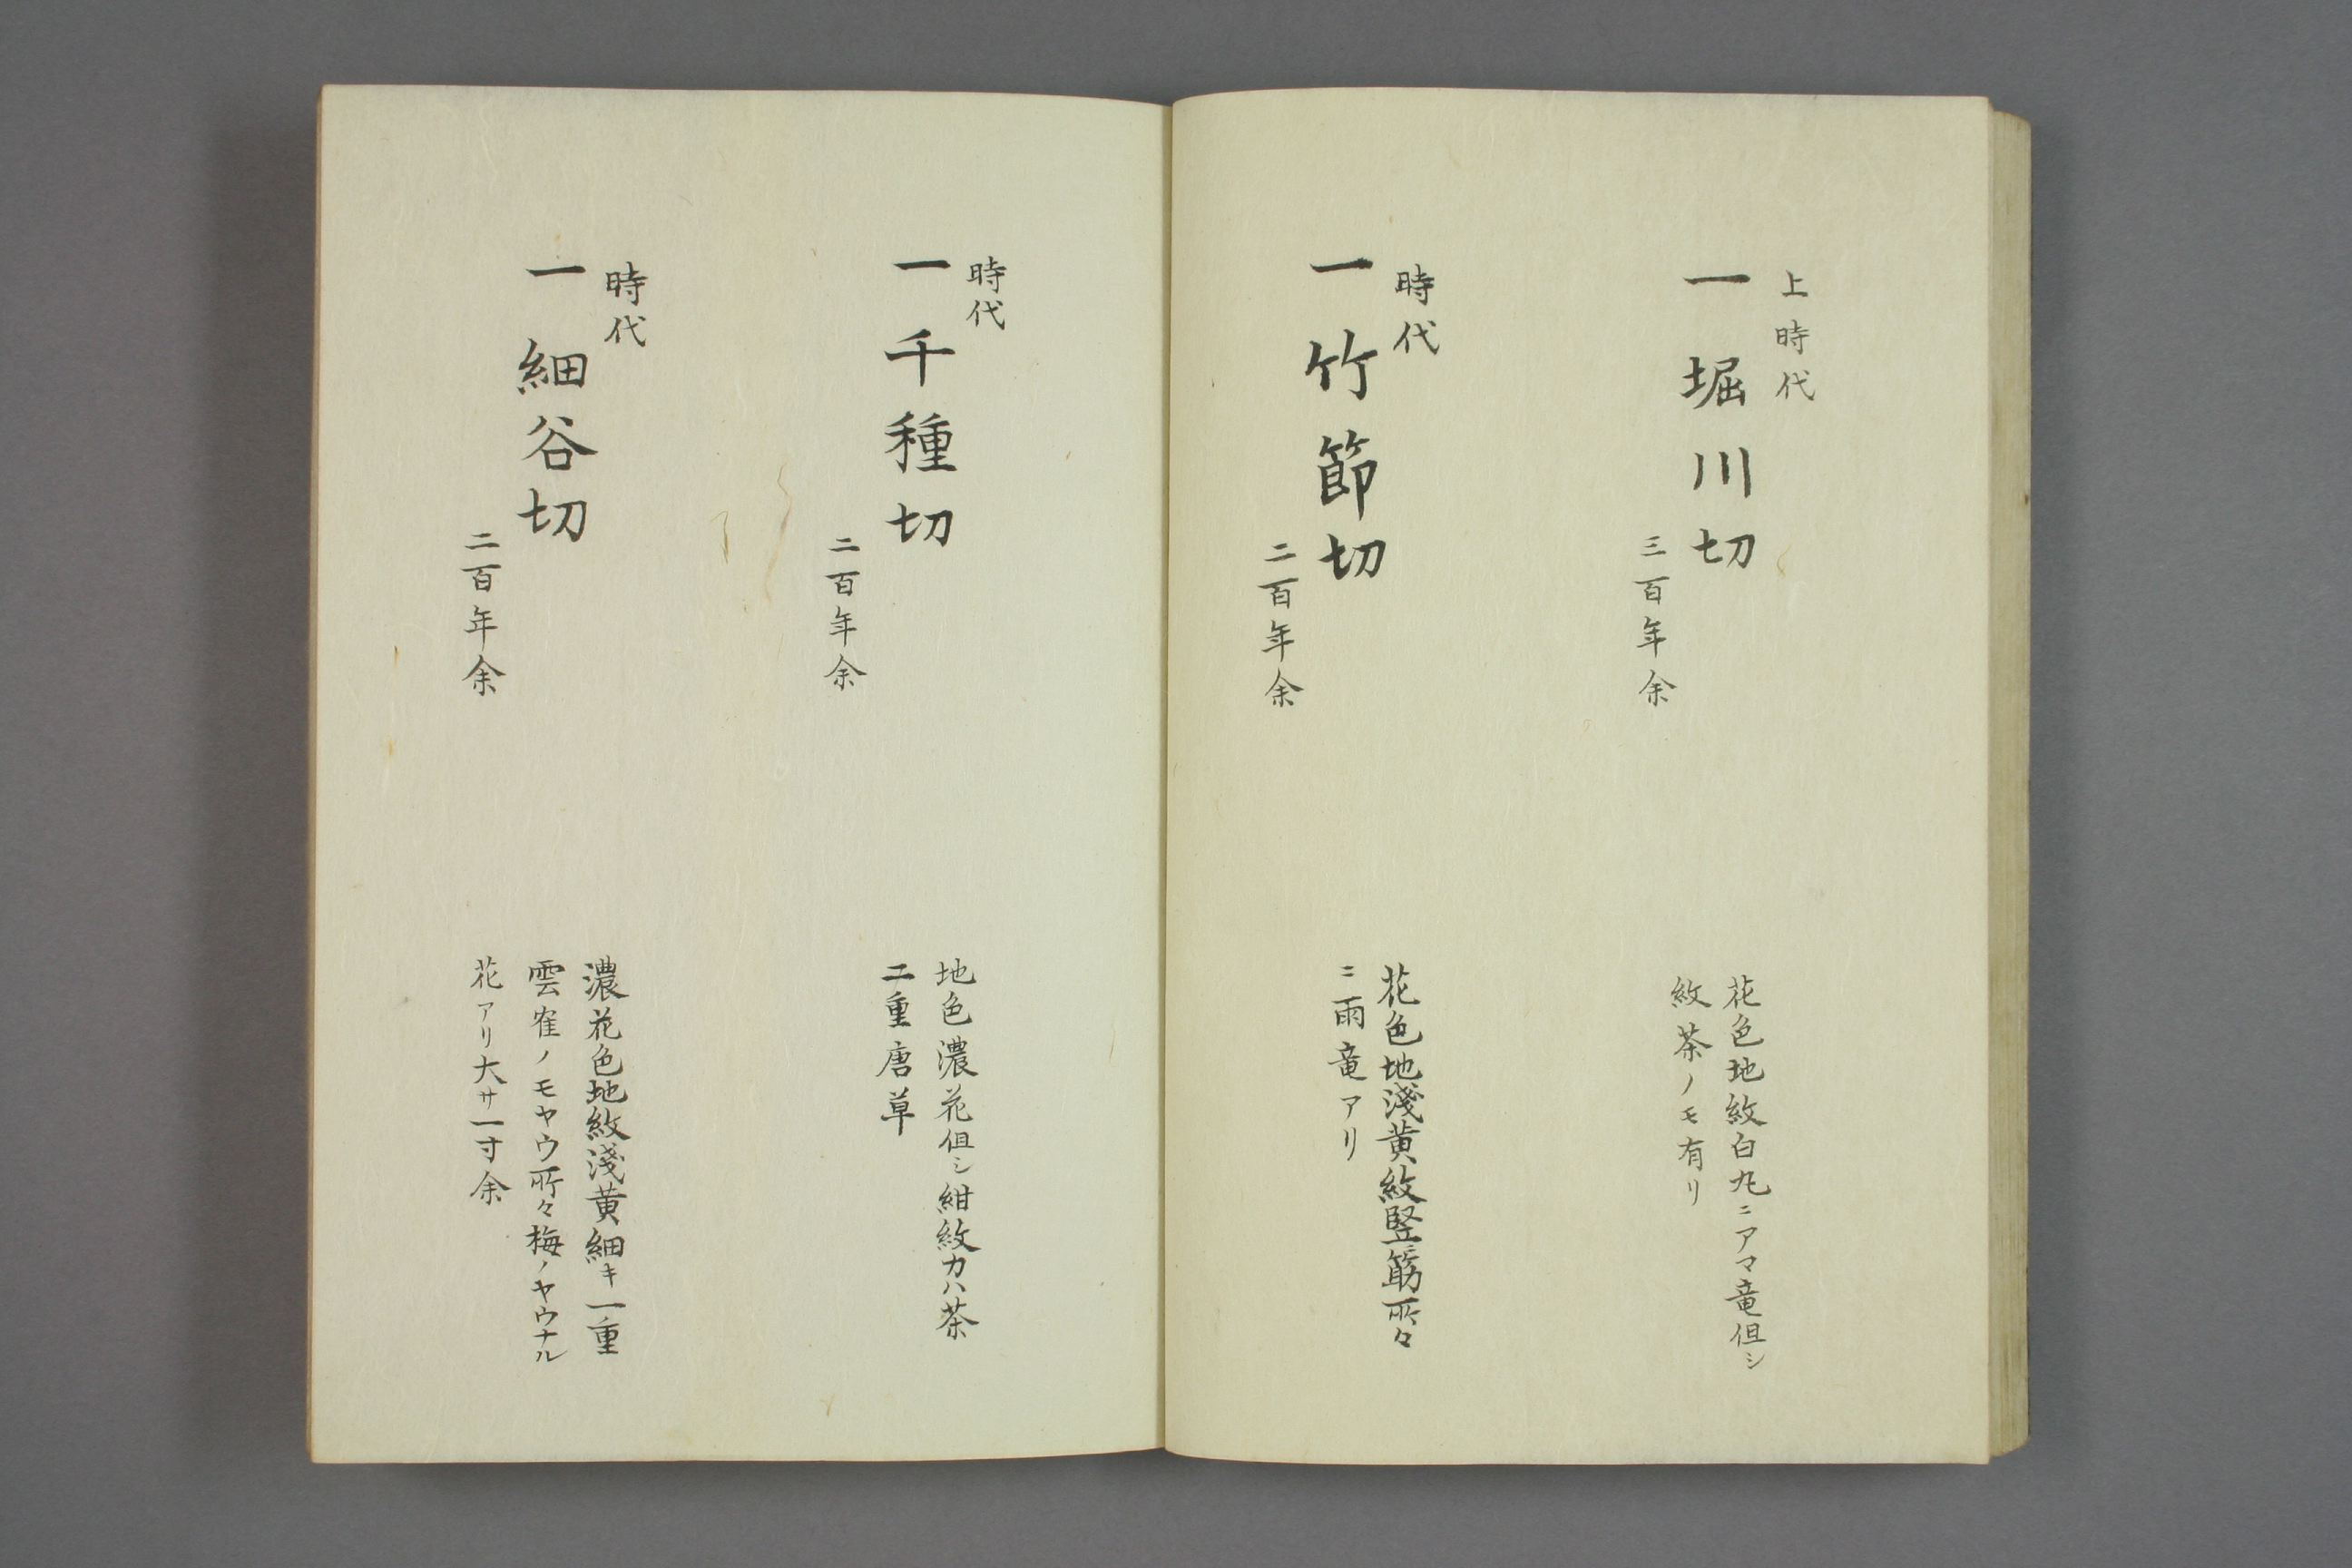 上時代
一 堀川切
三百年余
花色地紋白丸ニアマ竜但シ
紋茶ノモ有リ
時代
一 竹節切
二百年余
花色地淺黄紋竪筋所々
ニ雨竜アリ
時代
一 千種切
二百年余
地色濃花但シ紺紋カハ茶
二重唐草
時代
一 細谷切
二百年余
濃花色地紋淺黄細キ一重
雲寉ノモヤウ所々梅ノヤウナル
花アリ大サ一寸余